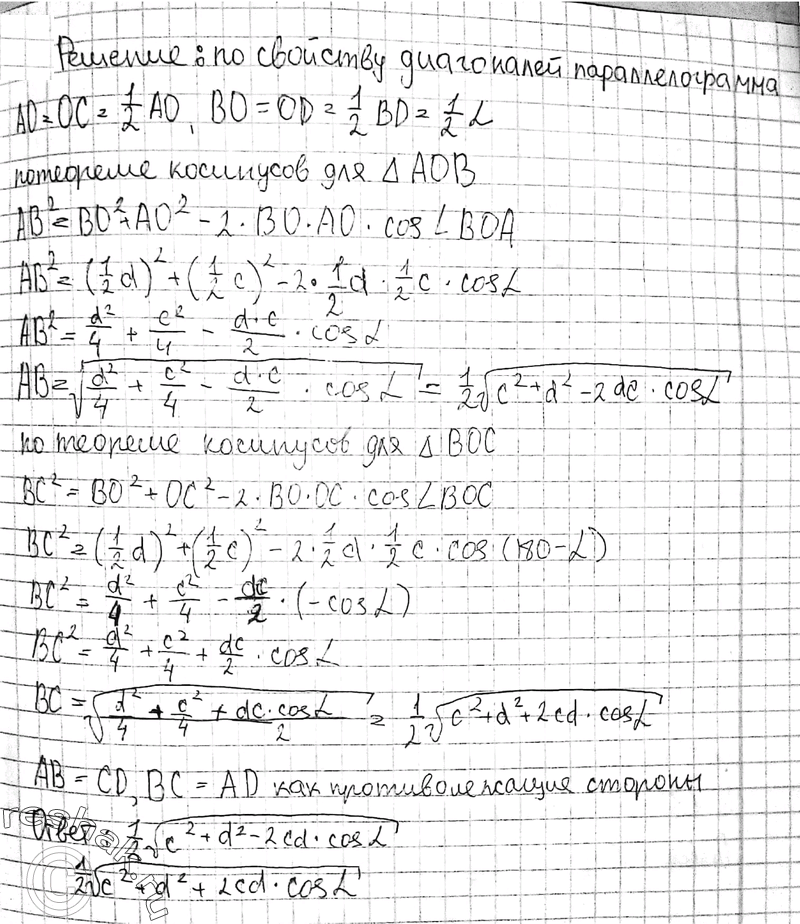 Решение: по свойству диагоналей параллелограмма
AO = OC = 1/2 AO, BO = OD = 1/2 BD = 1/2 L
по теореме косинусов для Δ AOB
AB² = BO² + AO² - 2 · BO · AO · cos ∠BOA
AB² = (1/2 d)² + (1/2 c)² - 2 · 1/2 d · 1/2 c · cos L
AB² = d²/4 + c²/4 - d·c/2 · cos L
AB = √(d²/4 + c²/4 - d·c/2 · cos L) = 1/2 √(c² + d² - 2dc · cos L)
по теореме косинусов для Δ BOC
BC² = BO² + OC² - 2 · BO · OC · cos ∠BOC
BC² = (1/2 d)² + (1/2 c)² - 2 · 1/2 d · 1/2 c · cos (180 - L)
BC² = d²/4 + c²/4 - dc/2 · (-cos L)
BC² = d²/4 + c²/4 + dc/2 · cos L
BC = √(d²/4 + c²/4 + dc · cos L/2) = 1/2 √(c² + d² + 2cd · cos L)
AB = CD, BC = AD как противолежащие стороны
Ответ: 1/2 √(c² + d² - 2cd · cos L)
1/2 √(c² + d² + 2cd · cos L)